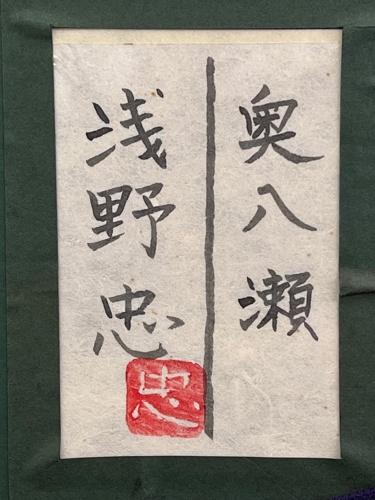 奥八瀬
浅野忠
忠